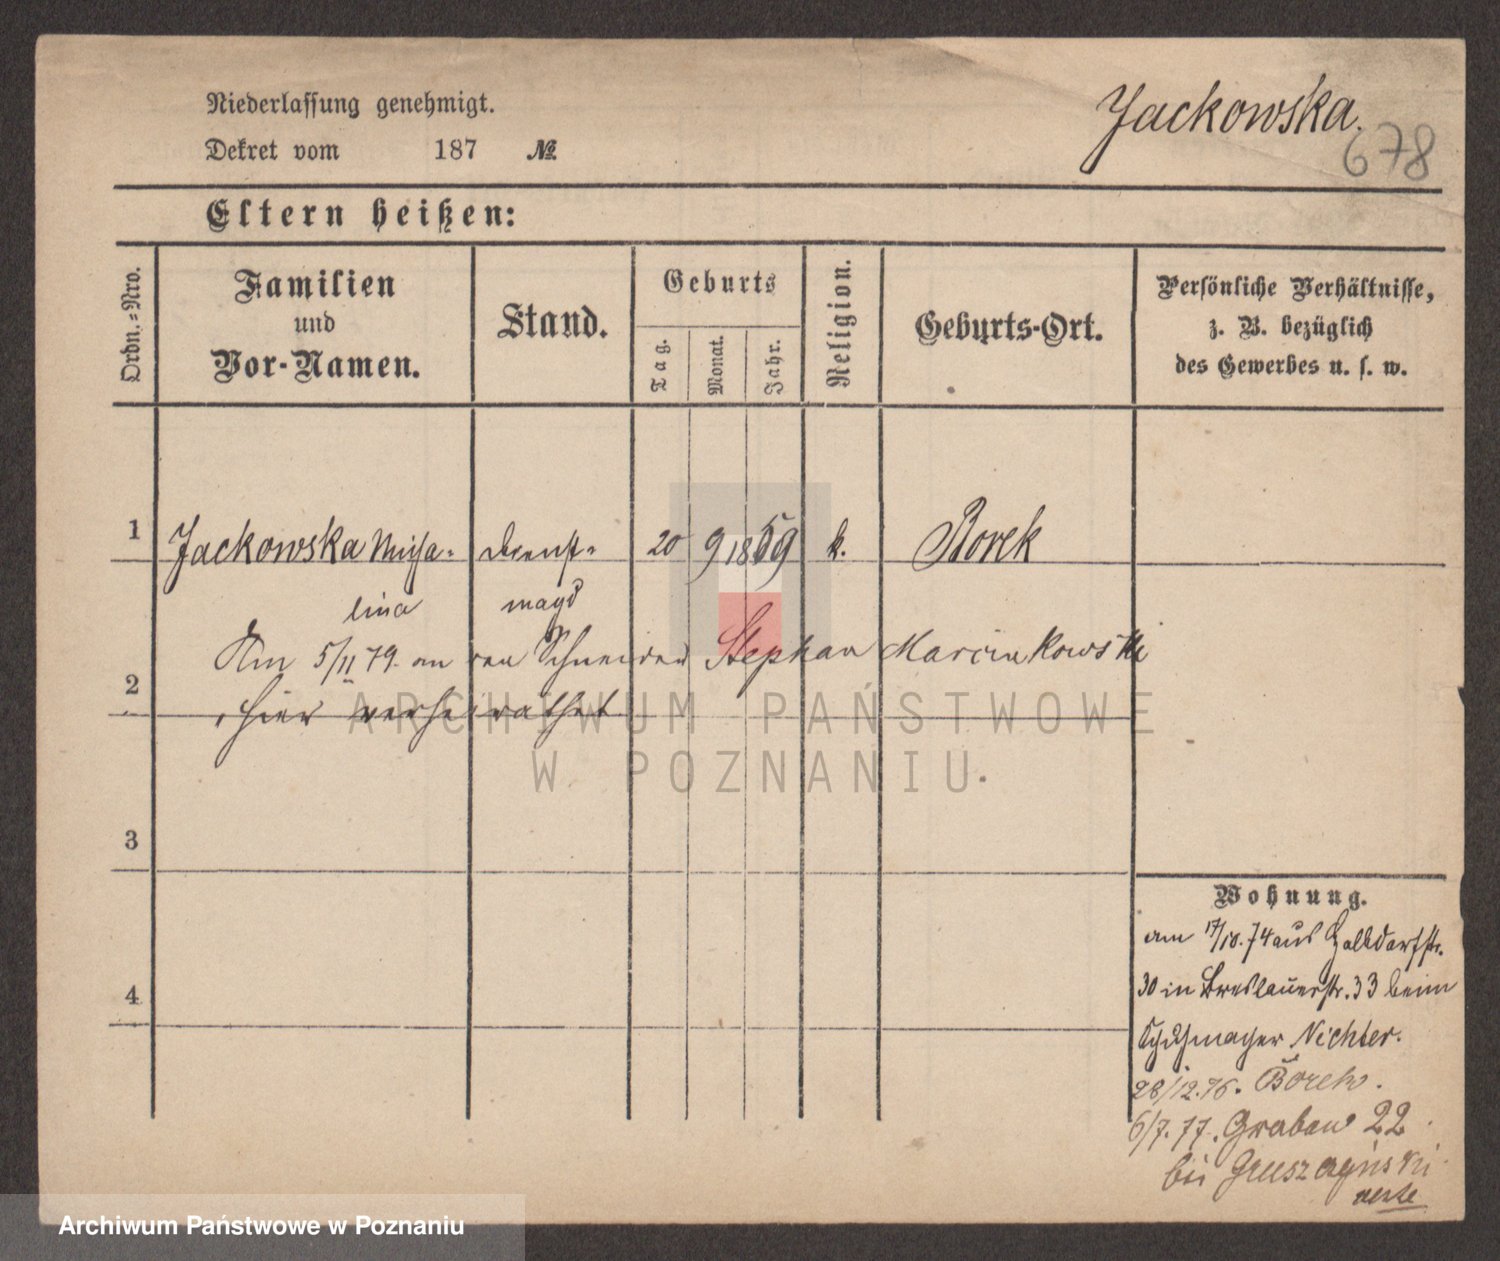 Niederlassung genehmigt.
Dekret vom 187 №
Jackowska.
678
Eltern heißen:
Ordn.-Nro.
Familien
und
Vor-Namen.
Stand.
Geburts
Tag.
Monat.
Jahr.
Religion.
Geburts-Ort.
Persönliche Verhältnisse,
z. B. bezüglich
des Gewerbes u. s. w.
1 Jackowska Micha- Dienst- 20 9 1859 k. Borek
lina magd
Am 5/11 79. an den Schneider Stephan Marcinkowski
2
hier verheirathet
3
4
Wohnung.
am 17/10. 74 aus Halbdorfstr.
30 in Breslauerstr. 33 beim
Schuhmacher Richter.
28/12. 76. Borek.
6/7. 77. Graben 22
bei Gruszczyński
ARCHIWUM PAŃSTWOWE
W POZNANIU
Archiwum Państwowe w Poznaniu